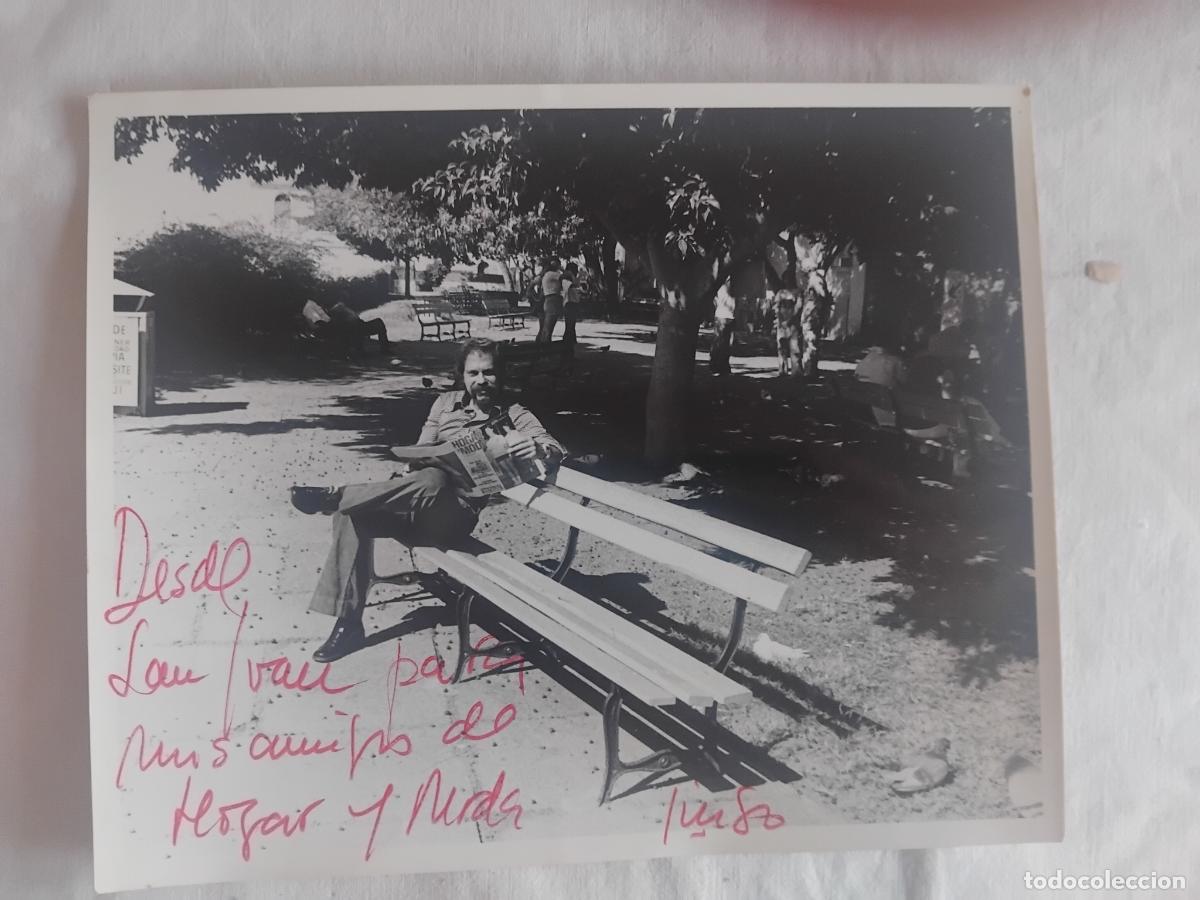 DE
SITE
HOGAR
MOD
Desde
San Juan para
mis amigos de
Hogar y Moda
todocoleccion